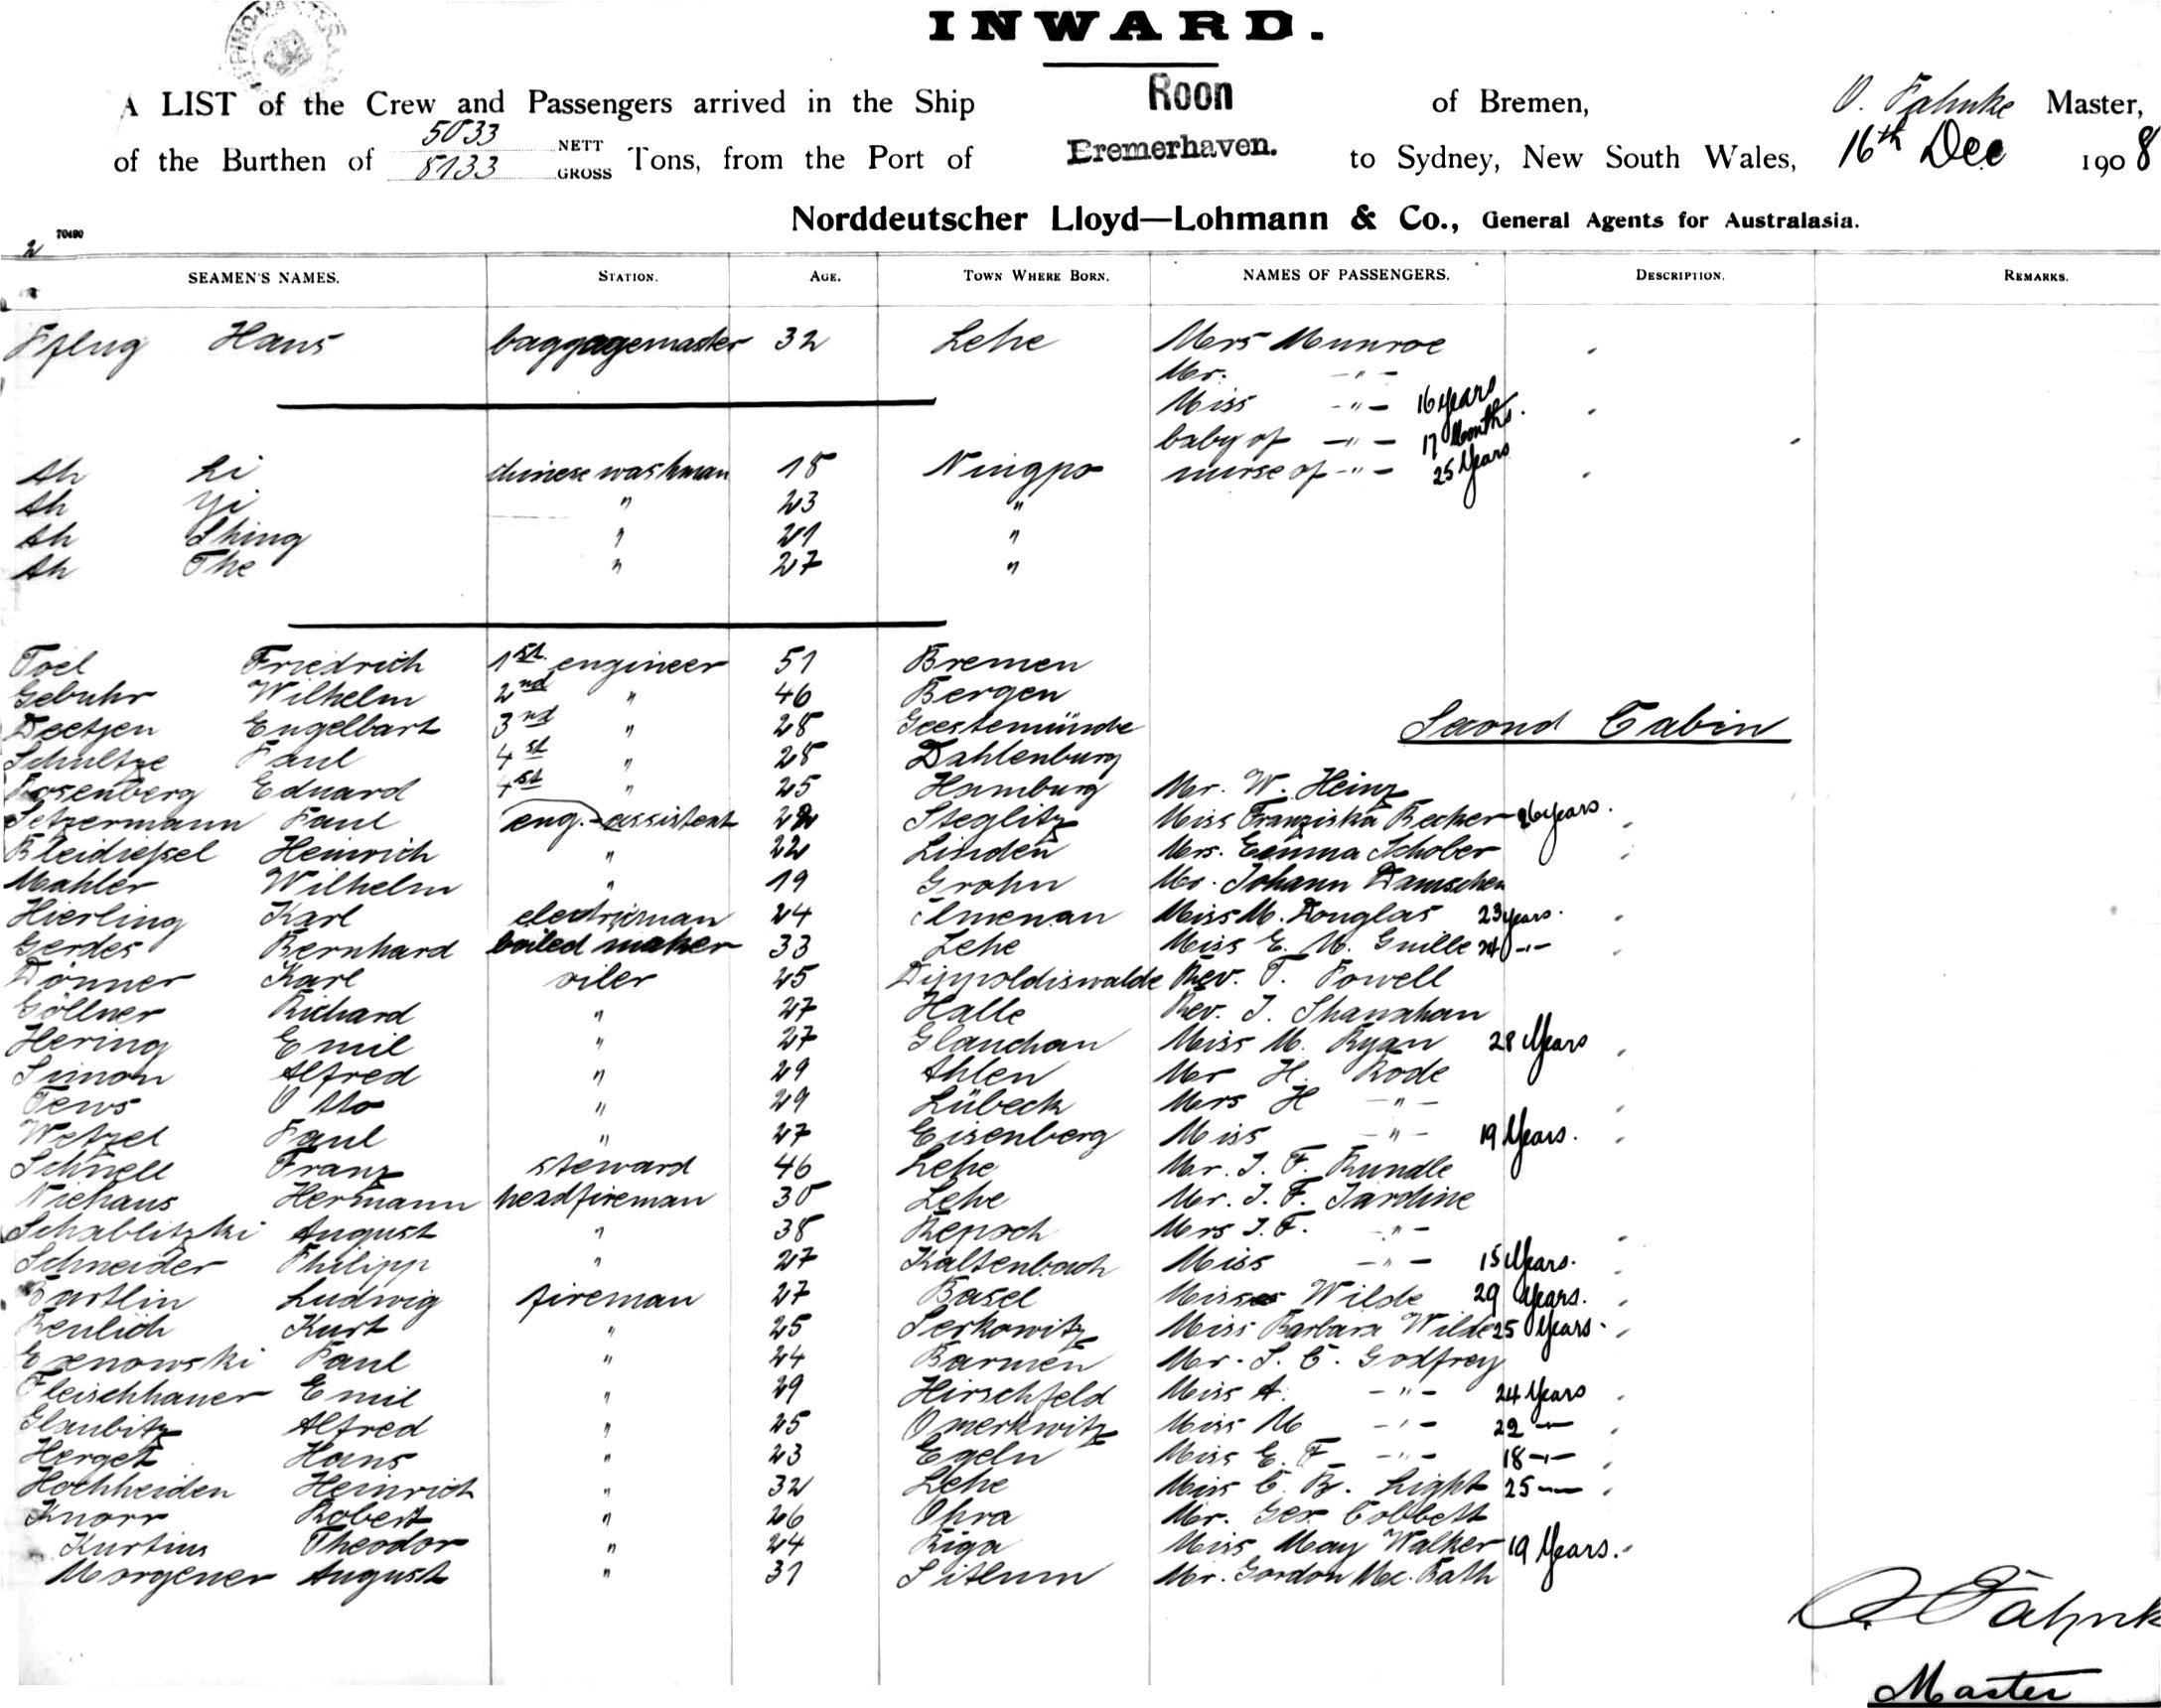 INWARD.
A LIST of the Crew and Passengers arrived in the Ship Roon of Bremen, O. Fahnke Master,
of the Burthen of 5033 NETT 8133 GROSS Tons, from the Port of Bremerhaven. to Sydney, New South Wales, 16th Dec 1908
Norddeutscher Lloyd—Lohmann & Co., General Agents for Australasia.
2 70490
SEAMEN'S NAMES. STATION. AGE. TOWN WHERE BORN. NAMES OF PASSENGERS. DESCRIPTION. REMARKS.
Pflug Hans baggagemaster 32 Lehe Mrs Munroe
Mr. -"-
Miss -"- 16 years
baby of -"- 17 Months.
Ah Li chinese washman 18 Ningpo nurse of -"- 25 Years
Ah Yi " 23 "
Ah Shing " 21 "
Ah The " 27 "
Toel Friedrich 1st engineer 51 Bremen
Gebuhr Wilhelm 2nd " 46 Bergen
Deetjen Engelbart 3nd " 28 Geestemünde Second Cabin
Schultze Paul 4st " 28 Dahlenburg
Rosenberg Eduard 4st " 25 Hamburg Mr. W. Heinz
Setzermann Paul eng.-assistent Steglitz Miss Franziska Becker 26 years.
Bleidießel Heinrich " 22 Linden Mrs. Emma Schober
Mahler Wilhelm " 19 Grohn Mr. Johann Damschen
Hierling Karl electrisman 24 Ilmenau Miss M. Douglas 23 years.
Gerdes Bernhard boiled maker 33 Lehe Miss E. M. Guille 24 -"-
Dönner Karl oiler 25 Dippoldiswalde Rev. T. Powell
Göllner Richard " 27 Halle Rev. J. Shanahan
Hering Emil " 27 Glauchau Miss M. Ryan 28 Years
Simon Alfred " 29 Ahlen Mr H. Rode
Tews Otto " 29 Lübeck Mrs H -"-
Wetzel Paul " 27 Eisenberg Miss -"- 19 Years.
Schnell Franz steward 46 Lehe Mr. J. F. Rundle
Niehaus Hermann headfireman 30 Lehe Mr. J. F. Jardine
Schablitzki August " 38 Repoch Mrs J. F. -"-
Schneider Philipp " 27 Kaltenbach Miss -"- 15 Years.
Bürtlin Ludwig fireman 27 Basel Misses Wilde 29 Years.
Renlich Kurt " 25 Serkowitz Miss Barbara Wilde 25 Years.
Exnowski Paul " 24 Barmen Mr. S. C. Godfrey
Fleischhauer Emil " 29 Hirschfeld Miss A. -"- 24 Years
Glaubitz Alfred " 25 Omerkwitz Miss M -"- 22 -"-
Herget Hans " 23 Egeln Miss E. F. -"- 18 -"-
Hochheiden Heinrich " 32 Lehe Miss C. B. Light 25 -"-
Knorr Robert " 26 Ohra Mr. Geo. Cobbett
Kurtius Theodor " 24 Riga Miss May Walker 19 Years.
Morgener August " 31 Mr. Gordon Mc. Bath
O. Fahnke
Master